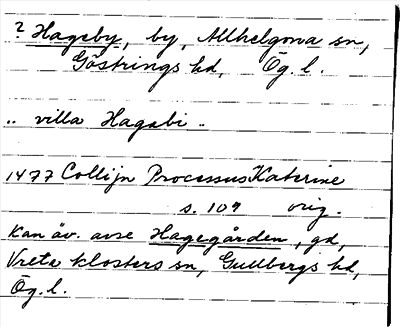 ? Hageby, by, Allhelgona sn,
Göstrings hd, Ög. l.
.. villa Hagabi ..
1477 Collijn Processus Katerine
s. 107 orig.
Kan äv. avse Hagegården, gd,
Vreta klosters sn, Gullbergs hd,
Ög. l.